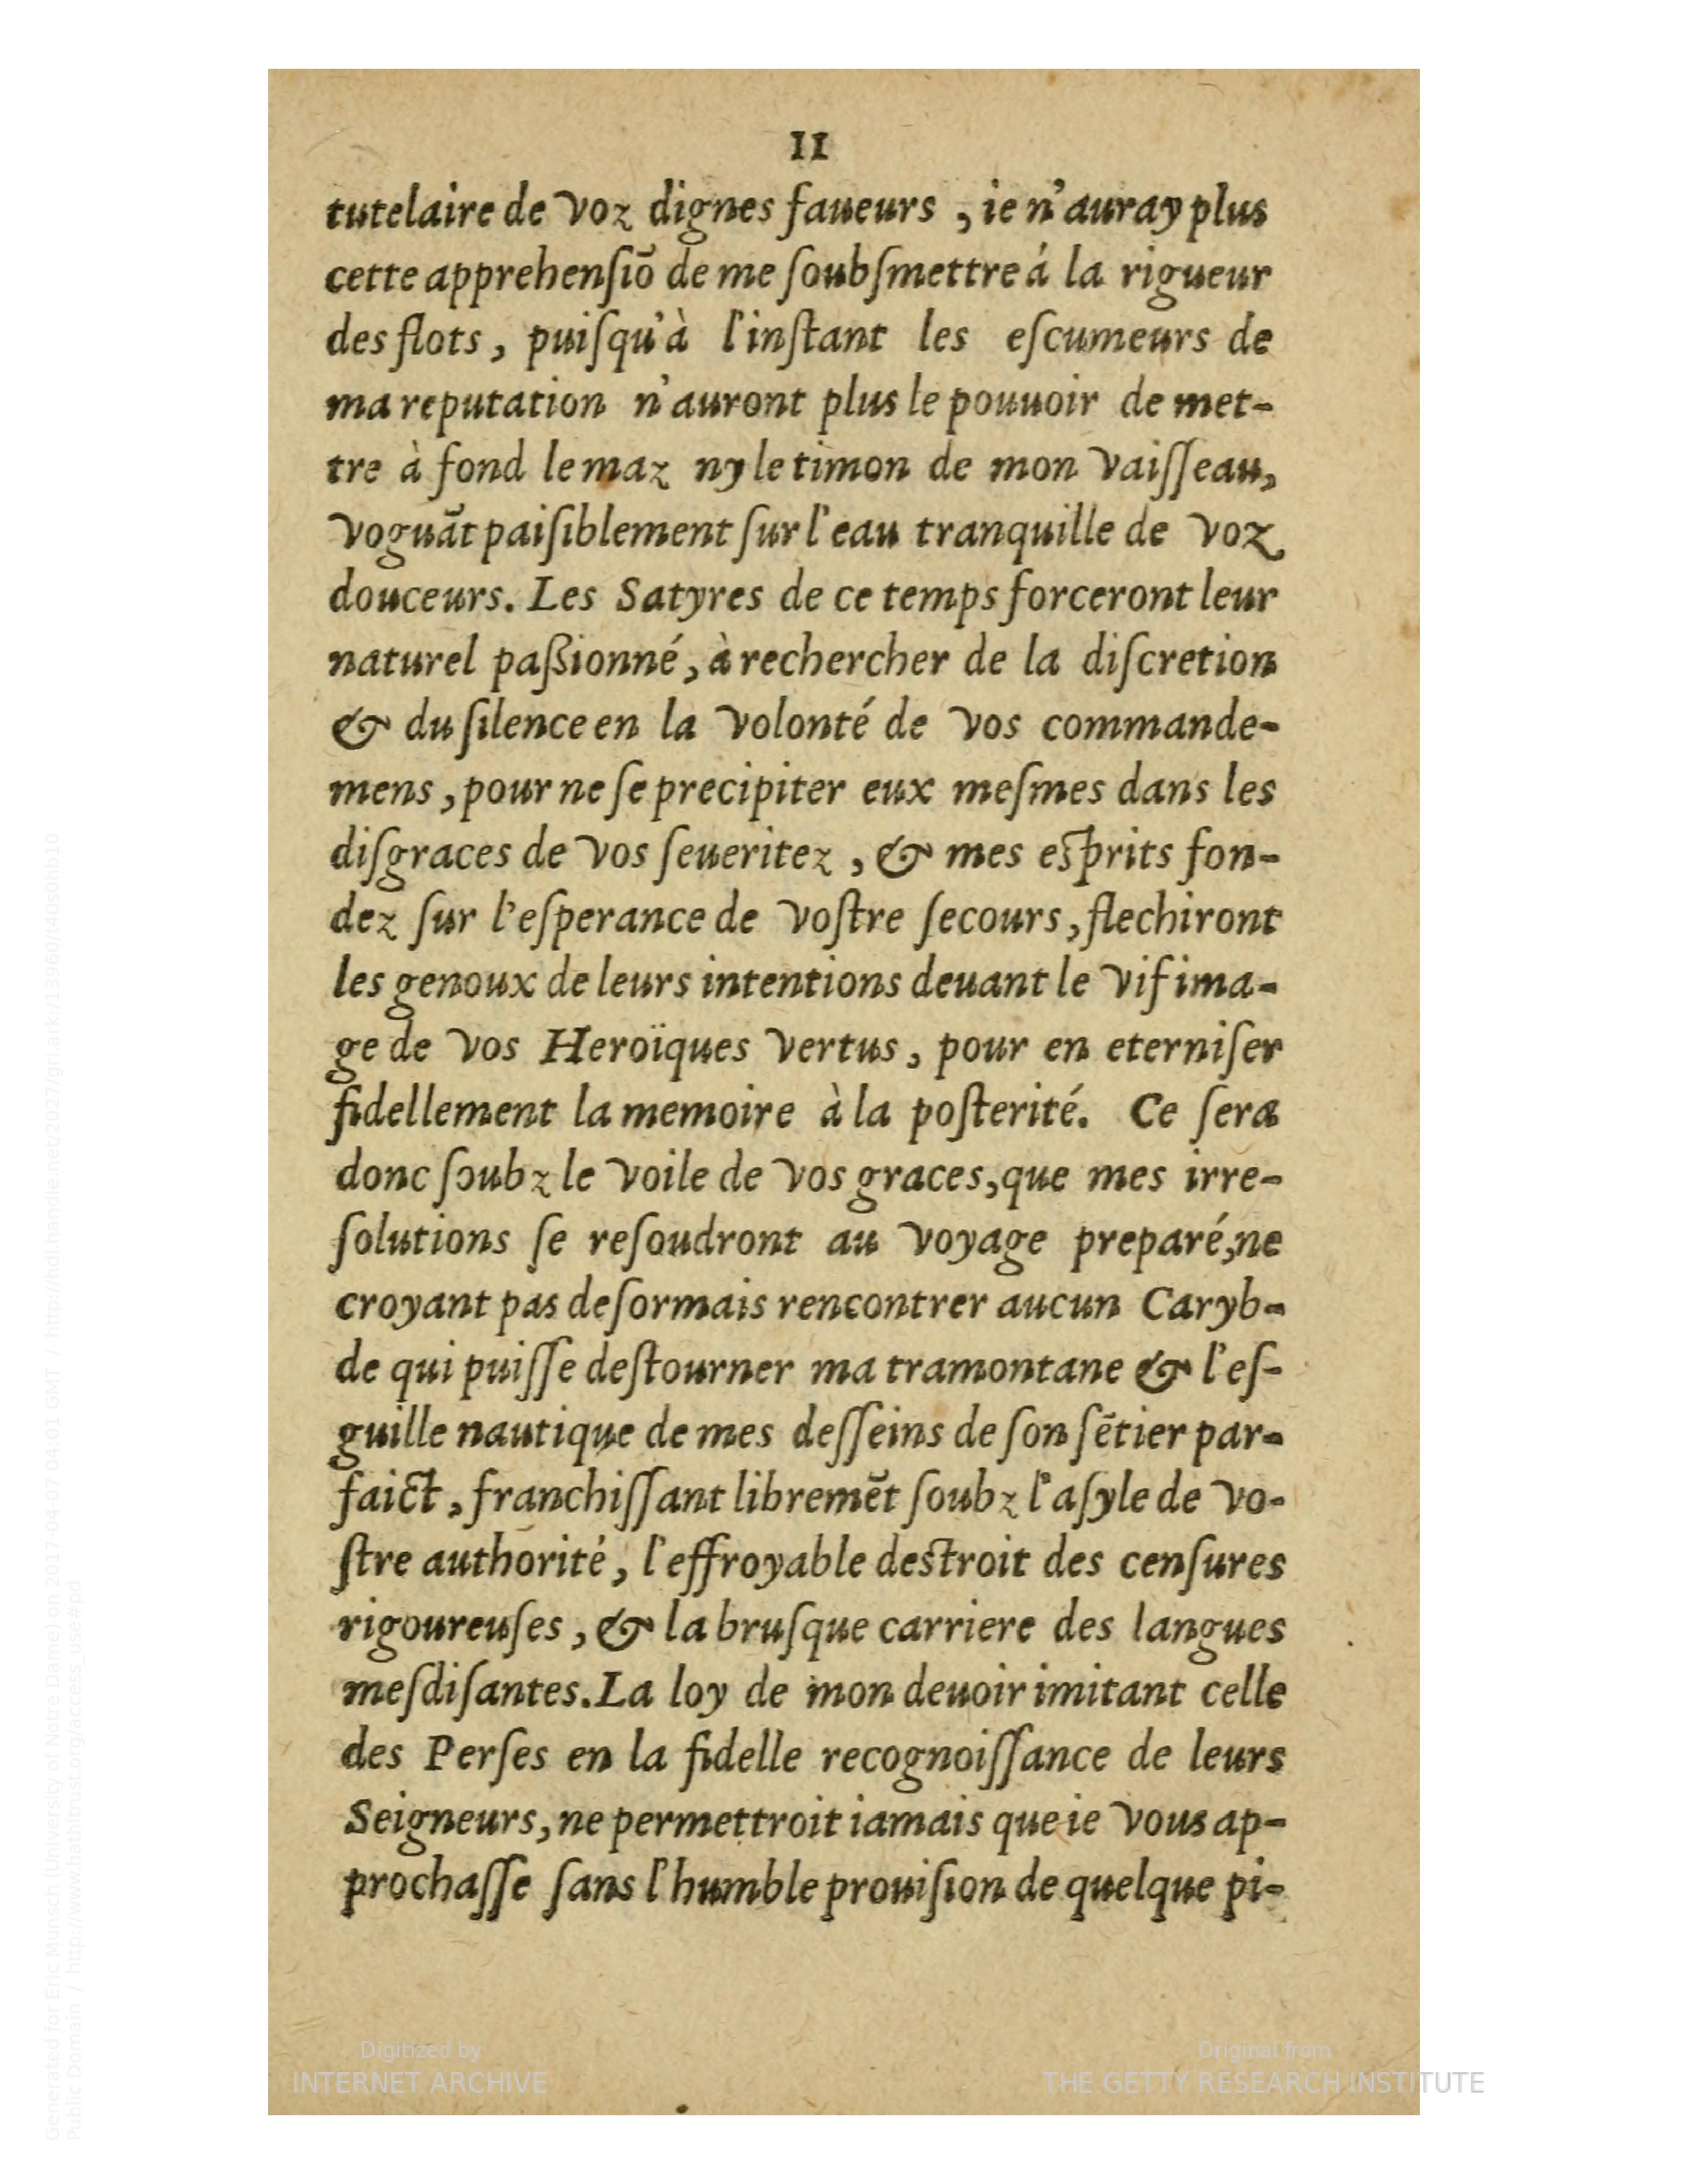 11
tutelaire de voz dignes faueurs , ie n'auray plus
cette apprehenſiō de me ſoubſmettre á la rigueur
des flots , puiſqu'à l'inſtant les eſcumeurs de
ma reputation n'auront plus le pouuoir de met-
tre à fond le maz ny le timon de mon vaiſſeau,
voguãt paiſiblement ſur l'eau tranquille de voz
douceurs. Les Satyres de ce temps forceront leur
naturel paßionné, à rechercher de la diſcretion
& du ſilence en la volonté de vos commande-
mens , pour ne ſe precipiter eux meſmes dans les
diſgraces de vos ſeueritez , & mes eſprits fon-
dez ſur l'eſperance de voſtre ſecours, flechiront
les genoux de leurs intentions deuant le vif ima-
ge de vos Heroïques vertus, pour en eterniſer
fidellement la memoire à la poſterité. Ce ſera
donc ſoubz le voile de vos graces, que mes irre-
ſolutions ſe reſoudront au voyage preparé, ne
croyant pas deſormais rencontrer aucun Caryb-
de qui puiſſe deſtourner ma tramontane & l'eſ-
guille nautique de mes deſſeins de ſon ſētier par-
faict, franchiſſant libremēt ſoubz l'aſyle de vo-
ſtre authorité, l'effroyable deſtroit des cenſures
rigoureuſes, & la bruſque carriere des langues
meſdiſantes. La loy de mon deuoir imitant celle
des Perſes en la fidelle recognoiſſance de leurs
Seigneurs, ne permettroit iamais que ie vous ap-
prochaſſe ſans l'humble prouiſion de quelque pi-
Digitized by
INTERNET ARCHIVE
Original from
THE GETTY RESEARCH INSTITUTE
Generated for Eric Munsch (University of Notre Dame) on 2017-04-07 04:01 GMT / http://hdl.handle.net/2027/gri.ark:/13960/t40s0hb10
Public Domain / http://www.hathitrust.org/access_use#pd